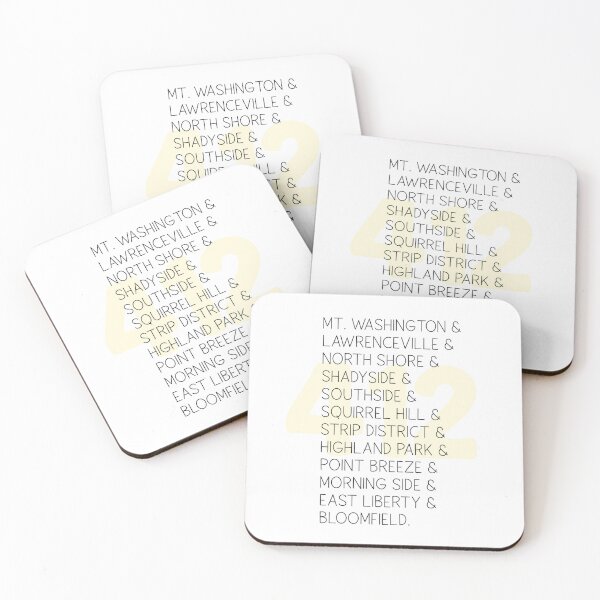 MT. WASHINGTON &
LAWRENCEVILLE &
NORTH SHORE &
SHADYSIDE &
SOUTHSIDE &
SQUIRREL HILL &
&
&
42
MT. WASHINGTON &
LAWRENCEVILLE &
NORTH SHORE &
SHADYSIDE &
SOUTHSIDE &
SQUIRREL HILL &
STRIP DISTRICT &
HIGHLAND PARK &
POINT BREEZE &
42
MT. WASHINGTON &
LAWRENCEVILLE &
NORTH SHORE &
SHADYSIDE &
SOUTHSIDE &
SQUIRREL HILL &
STRIP DISTRICT &
HIGHLAND PARK &
POINT BREEZE &
MORNING SIDE &
EAST LIBERTY &
BLOOMFIELD.
42
MT. WASHINGTON &
LAWRENCEVILLE &
NORTH SHORE &
SHADYSIDE &
SOUTHSIDE &
SQUIRREL HILL &
STRIP DISTRICT &
HIGHLAND PARK &
POINT BREEZE &
MORNING SIDE &
EAST LIBERTY &
BLOOMFIELD.
42